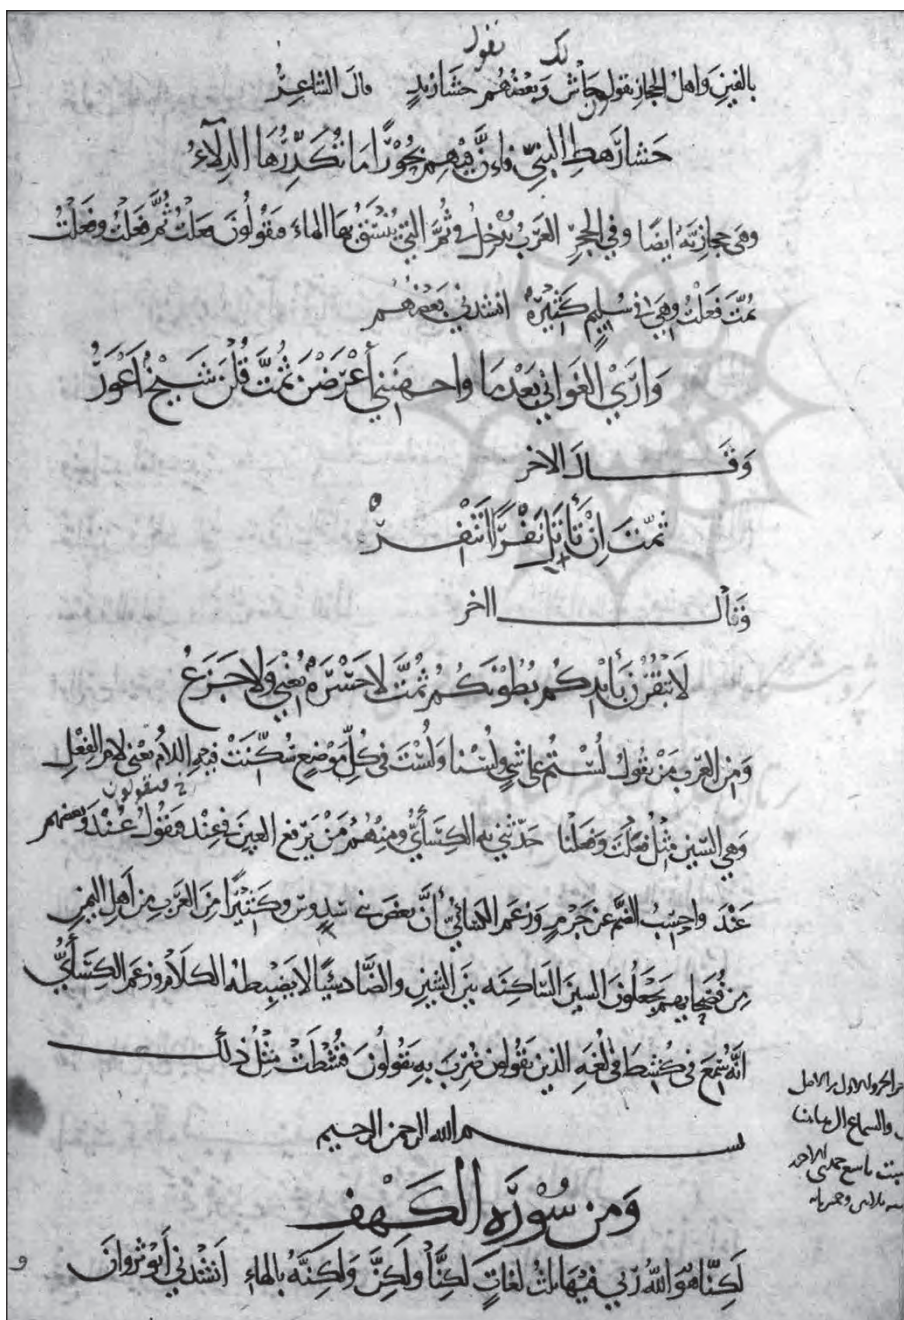 لك نقول
بالفين واهل الحجاز يقولون حاش وبعضهم حشا زيد قال الشاعر
حشا رهط النبي فإن فيهم بحورا ما تكدرها الدلاء
وهي حجازية ايضا وفي الحجر العرب تدخل في ثم التي ينسق بها الهاء فيقولون فعلت ثم فعلت وفعلت
ثمت فعلت وهي في سليم كثيرة انشدني بعضهم
وارى الغواني بعدما واجهنني أعرضن ثمت قلن شيخ اعور
وقال الاخر
ثمت إن تأتنا نفرا تنفر
وقال الاخر
بأيديكم بطونكم ثمت لا حسرة تغني ولا جزع
ومن العرب من يقول لستم على شي ولسنا ولست في كل موضع سكنت فيه اللام يعني لام الفعل
فيقولون
وهي السين مثل فعلت وفعلنا حدثني به الكسأي ومنهم من يرفع العين في عند فيقول عند وبعضهم
عند واحسب الضم عن جرم وزعم الكسائي أن بعض بني سدوس وكثيرا من العرب من اهل اليمن
من فصحايهم يجعلون السين الساكنه بين الشين والصاد شيئا لا يضبطه الكلام وزعم الكسأي
انه سمع في كشطا في لغه الذين يقولون ضرب به يقولون قشطت مثل ذلك
بسم الله الرحمن الرحيم
ومن سورة الكهف
لكنا هو الله ربي فيها ثلث لغات لكنا ولكن ولكنه بالهاء انشدني أبو ثروان
اخر الجزو الاول من الاصل